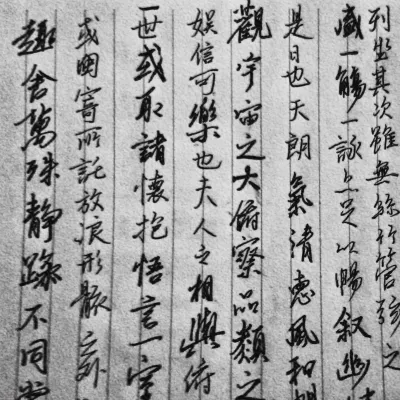 列坐其次雖無絲竹管弦之
盛一觴一詠亦足以暢敘幽情
是日也天朗氣清惠風和暢
觀宇宙之大俯察品類之
娛信可樂也夫人之相與俯
一世或取諸懷抱悟言一室
或因寄所託放浪形骸之外
趣舍萬殊靜躁不同當